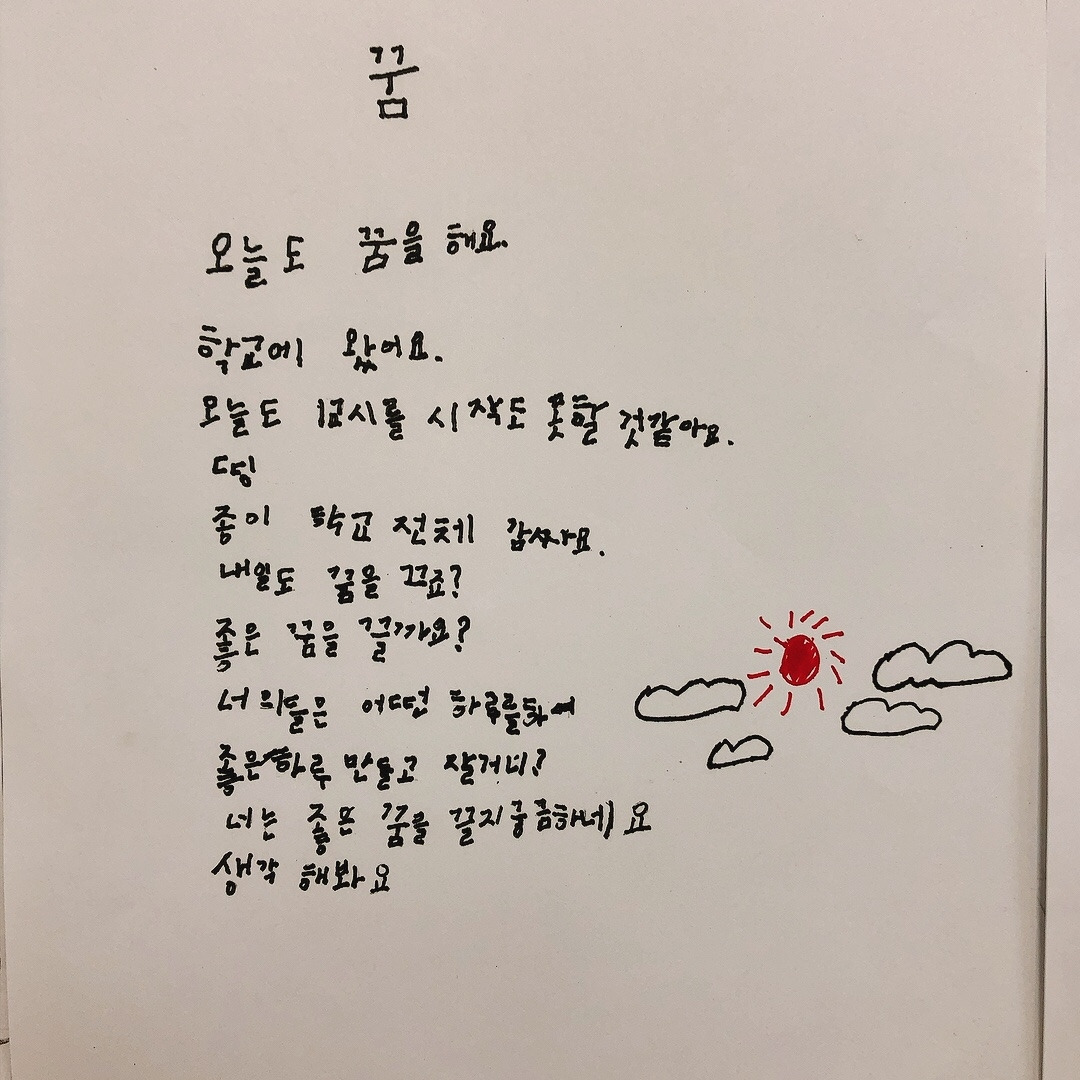 꿈
오늘도 꿈을 해요.
학교에 왔어요.
오늘도 1교시를 시작도 못할 것같아요.
댕
종이 학교 전체 감싸요.
내일도 꿈을 끄죠?
좋은 꿈을 끌까요?
너의들은 어떤 하루를
좋은하루 만들고 잘거니?
너는 좋은 꿈을 끌지궁금하네요
생각 해봐요